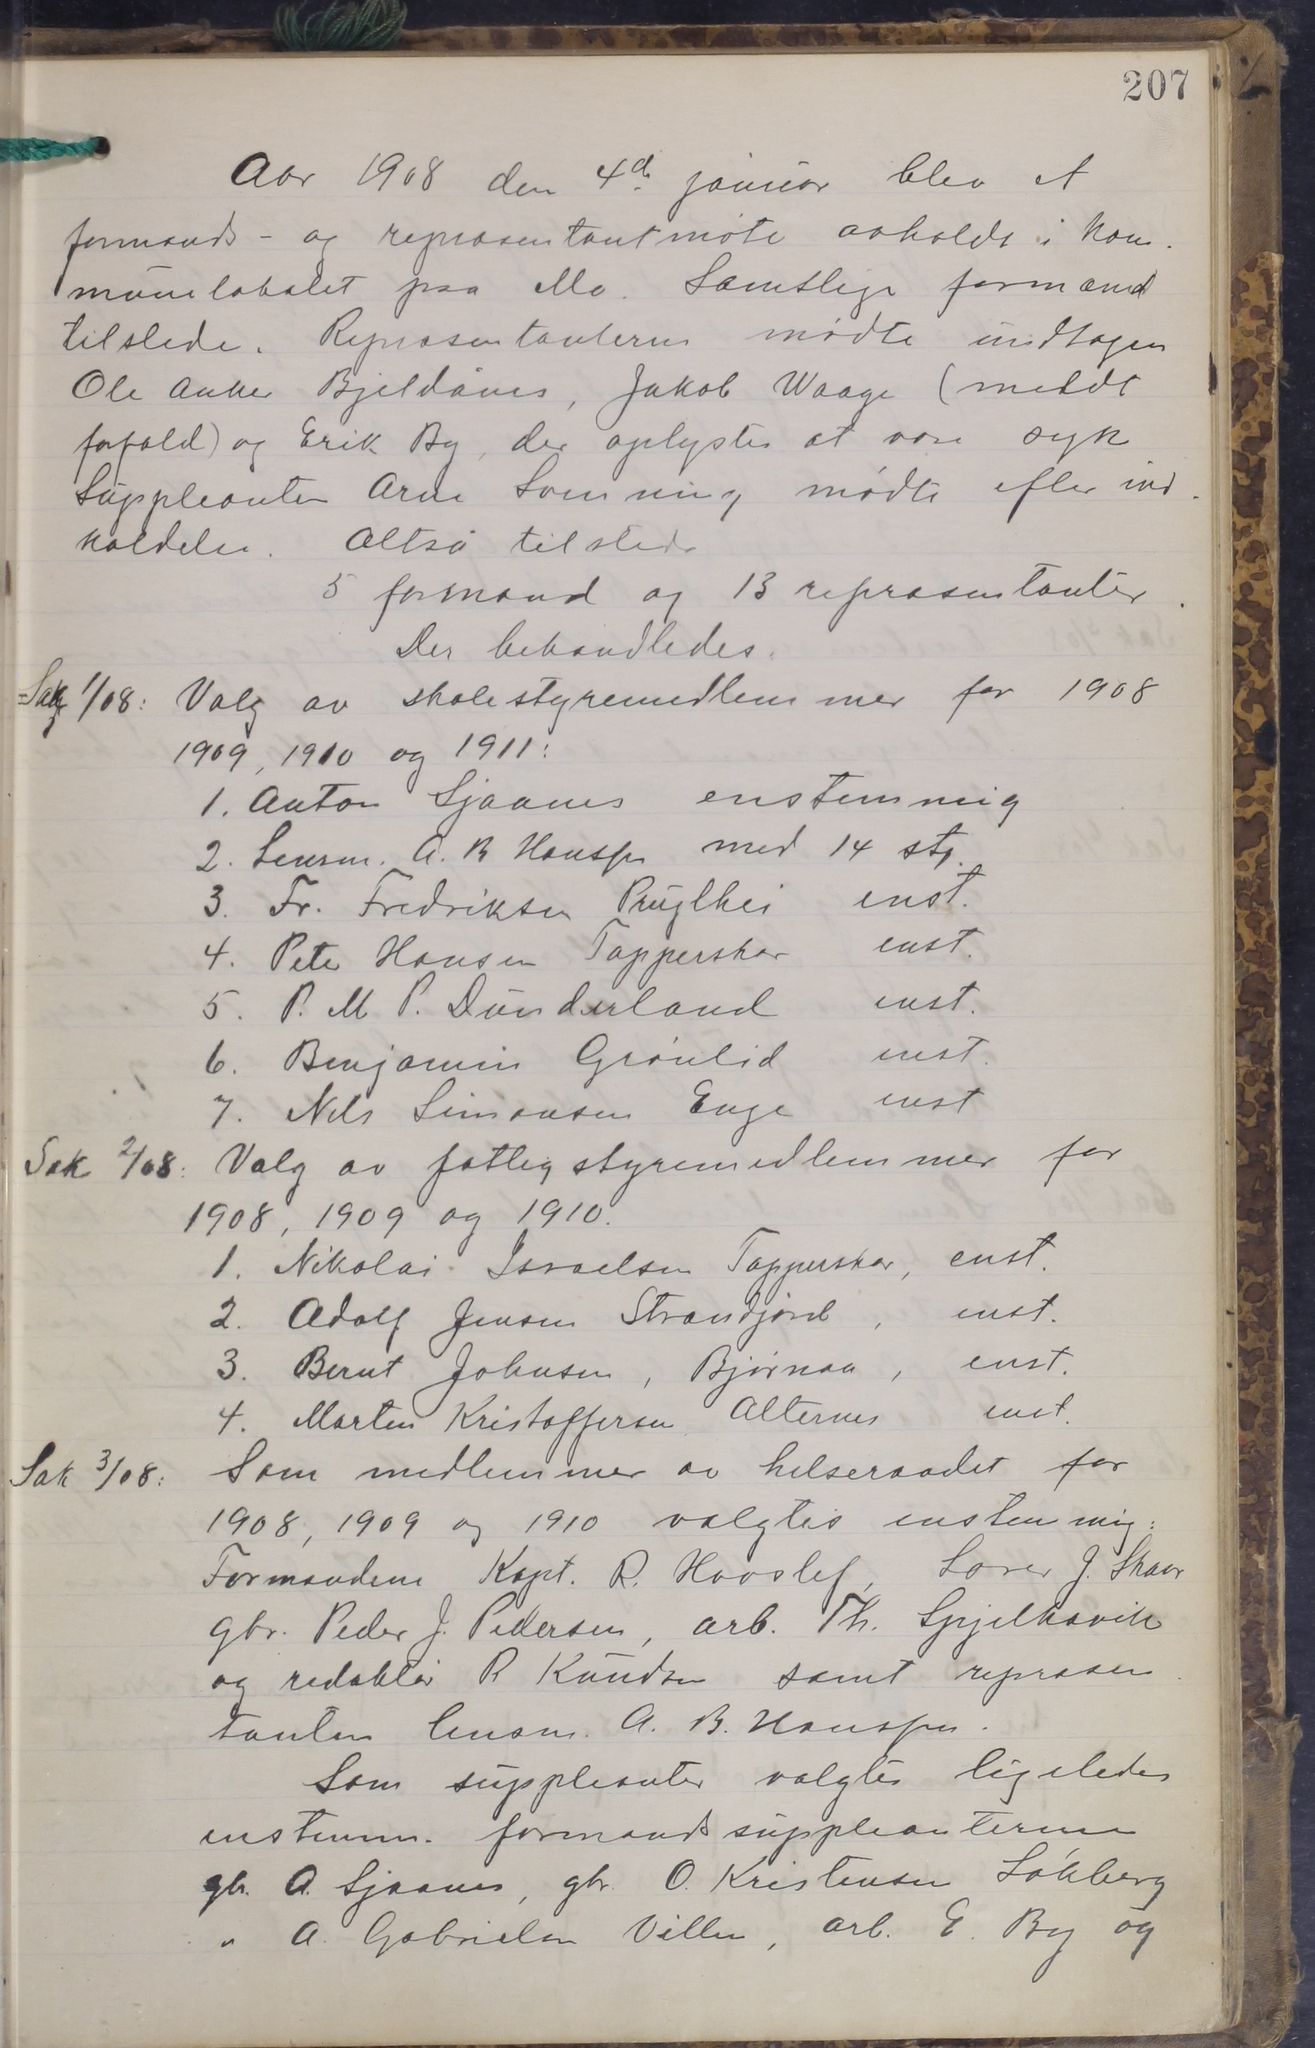 207
Aar 1908 den 4de januar blev et
formands- og repræsentantmøte avholdt i kom-
munelokalet paa Mo. Samtlige formænd
tilstede. Repræsentanterne mødte undtagen
Ole Anker Bjeldånes, Jakob Waage (meldt
forfald) og Erik By, der oplystes at være syk
Suppleanten Arne Svenning mødte efter ind-
kaldelse. Altså tilstede
5 formænd og 13 repræsentanter.
Der behandledes.
Sak 1/08: Valg av skolestyremedlemmer for 1908
1909, 1910 og 1911:
1. Anton Sjaanes enstemmig
2. Lensm. A. B Hanssen med 14 st.
3. Fr. Fredriksen enst.
4. Peter Hansen Tapperskar enst.
5. P. M P. Dunderland enst.
6. Benjamin Grønlid enst.
7. Nils Simonsen Enge enst
Sak 2/08: Valg av fattigstyremedlemmer for
1908, 1909 og 1910.
1. Nikolai Israelsen Tapperskar, enst.
2. Adolf Jensen Strandjord, enst.
3. Bernt Johnsen, Bjørnaa, enst.
4. Marten Kristoffersen Alternes enst.
Sak 3/08: Som medlemmer av helseraadet for
1908, 1909 og 1910 valgtes enstemmig:
Formændene Kapt. R. Hovslef, Lærer J. Skaar
gbr. Peder J. Pedersen, arb. Th. Spjelkavik
og redaktør R Knudsen samt repræsen-
tanten lensm. A. B. Hanssen.
Som suppleanter valgtes ligeledes
enstemm. formandssuppleanterne
gbr. A. Sjaanes, gbr. O. Kristensen Søkberg
" A. Gabrielsen Villen, arb. E. By og